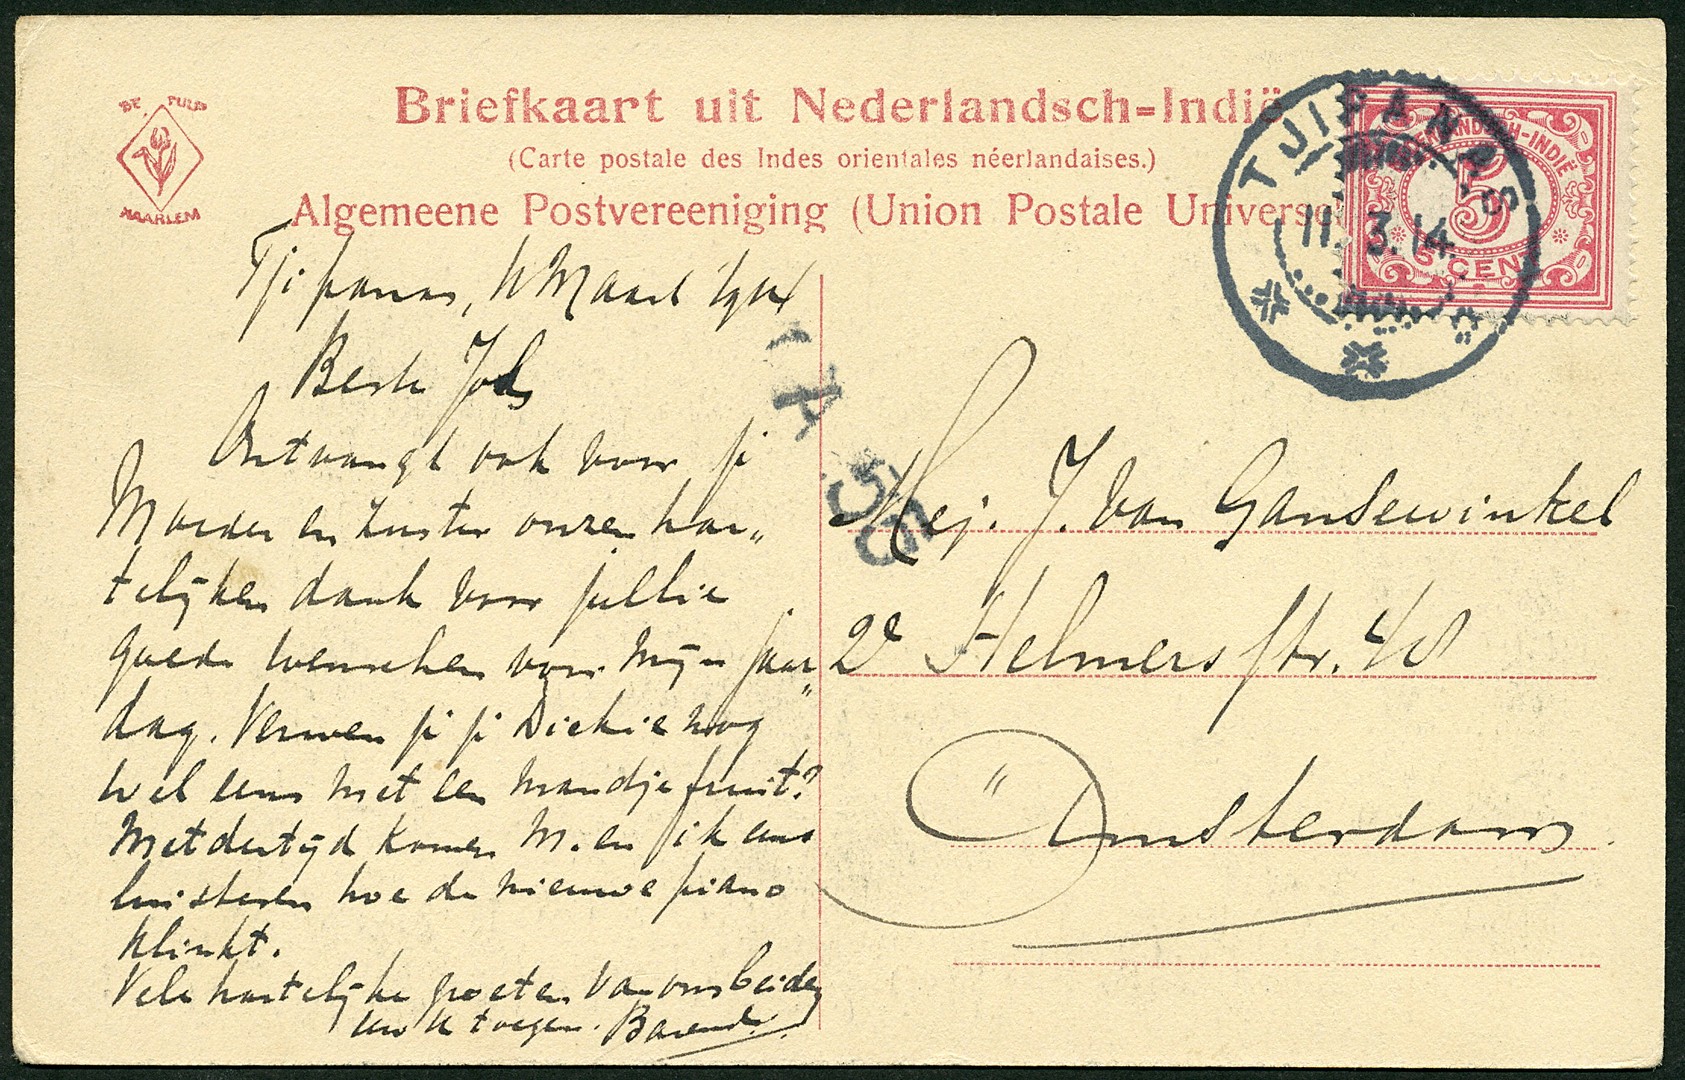 DE TULP
HAARLEM
Briefkaart uit Nederlandsch-Indië
(Carte postale des Indes orientales néerlandaises.)
Algemeene Postvereeniging (Union Postale Universe
TJIPANAS
11.3.14
NEDERLANDSCH-INDIË
5
CENT
Tjipanas, 11 Maart 1914
Beste Jo
Ontvangt ook voor je
Moeder en Zuster onzen har„
telijken dank voor jullie
goede wenschen voor mijn jaar„
dag. Verwen je je Dickie nog
wel eens met een mandje fruit?
Metdertijd komen M. en ik eens
luisteren hoe de nieuwe piano
klinkt.
Vele hartelijke groeten van ons beiden
uw toegen. Barend
Mej. J. van Gansewinkel
2e Helmersstr. 48
Amsterdam.